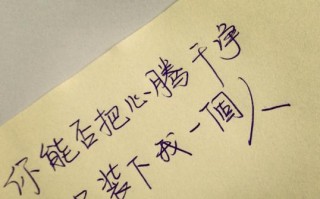 你能否把心腾干净
装下我一個人